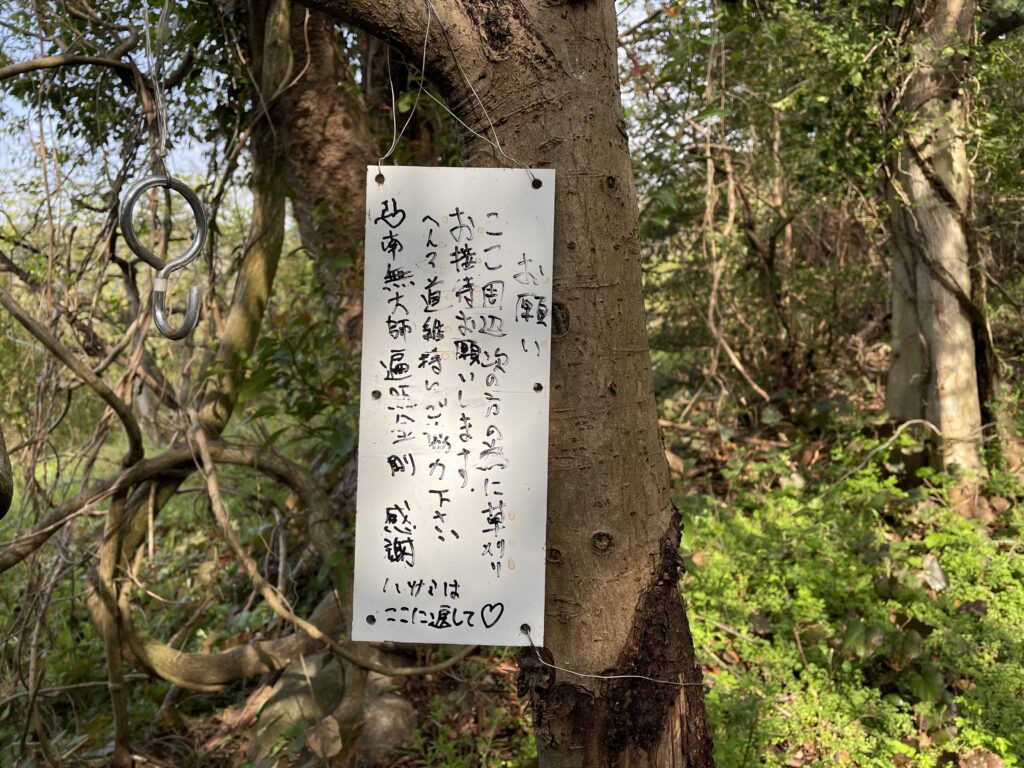 お願い
ここ周辺次の方の為に草刈り
お接待お願いします。
へんろ道維持にご協力下さい
南無大師遍照金剛　感謝
ハサミは
ここに返して♡